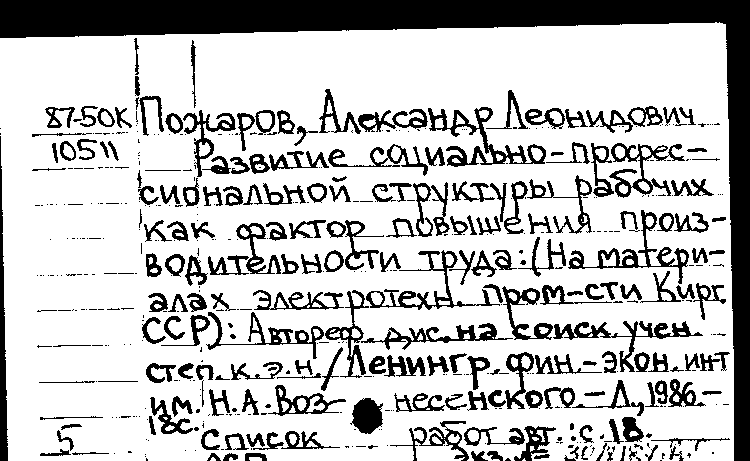 87-50К Пожаров, Александр Леонидович.
10511 Развитие социально-профес-
сиональной структуры рабочих
как фактор повышения произ-
водительности труда: (На матери-
алах электротехн. пром-сти Кирг.
ССР): Автореф. дис. на соиск. учен.
степ. к. э. н. / Ленингр. фин.-экон. ин-т
им. Н. А. Воз- несенского. - Л., 1986. -
18с.
5 Список работ авт.: с. 18.